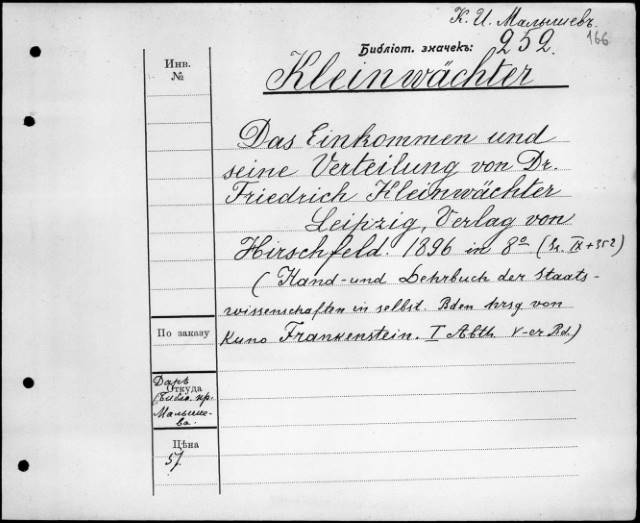 К. И. Малышевъ.
166
Библіот. значекъ: 252.
Инв.
№
Kleinwächter
Das Einkommen und
seine Verteilung von Dr.
Friedrich Kleinwächter
Leipzig, Verlag von
Hirschfeld. 1896 in 8º (Sr. IX+352)
(Hand- und Lehrbuch der Staats-
wissenschaften in selbst. Bden hrsg von
Kuno Frankenstein. I Abth. V-er Bd.)
По заказу
Даръ
Откуда
(Библ. пр.
Малыше-
ва.
Цѣна
5/.